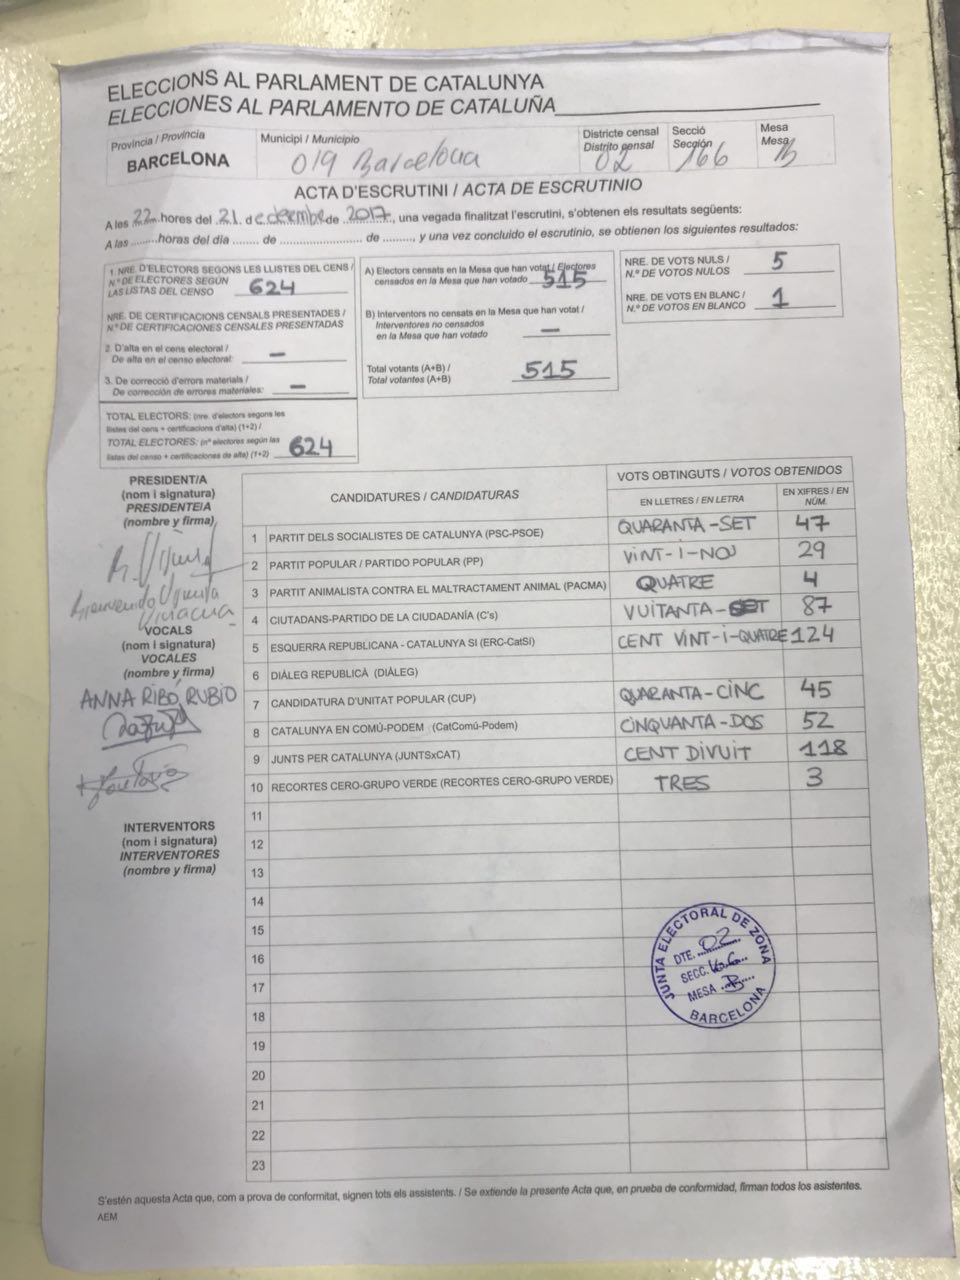 ELECCIONS AL PARLAMENT DE CATALUNYA
ELECCIONES AL PARLAMENTO DE CATALUÑA
Província / Provincia
BARCELONA
Municipi / Municipio
019 Barcelona
Districte censal
Distrito censal
02
Secció
Sección
166
Mesa
Mesa
B
ACTA D'ESCRUTINI / ACTA DE ESCRUTINIO
A les 22 hores del 21 de desembre de 2017, una vegada finalitzat l'escrutini, s'obtenen els resultats següents:
A las ........horas del día ....... de ........................ de ........, y una vez concluido el escrutinio, se obtienen los siguientes resultados:
1. NRE. D'ELECTORS SEGONS LES LLISTES DEL CENS /
N.º DE ELECTORES SEGÚN
LAS LISTAS DEL CENSO 624
NRE. DE CERTIFICACIONS CENSALS PRESENTADES /
N.º DE CERTIFICACIONES CENSALES PRESENTADAS
2. D'alta en el cens electoral /
De alta en el censo electoral: —
3. De correcció d'errors materials /
De corrección de errores materiales: —
TOTAL ELECTORS: (nre. d'electors segons les
llistes del cens + certificacions d'alta) (1+2) /
TOTAL ELECTORES: (nº electores según las
listas del censo + certificaciones de alta) (1+2) 624
A) Electors censats en la Mesa que han votat / Electores
censados en la Mesa que han votado 515
B) Interventors no censats en la Mesa que han votat /
Interventores no censados
en la Mesa que han votado —
Total votants (A+B) /
Total votantes (A+B) 515
NRE. DE VOTS NULS /
N.º DE VOTOS NULOS 5
NRE. DE VOTS EN BLANC /
N.º DE VOTOS EN BLANCO 1
PRESIDENT/A
(nom i signatura)
PRESIDENTE/A
(nombre y firma)
Bienvenido
VOCALS
(nom i signatura)
VOCALES
(nombre y firma)
ANNA RIBÓ RUBIO
INTERVENTORS
(nom i signatura)
INTERVENTORES
(nombre y firma)
CANDIDATURES / CANDIDATURAS
VOTS OBTINGUTS / VOTOS OBTENIDOS
EN LLETRES / EN LETRA
EN XIFRES / EN NÚM.
1 PARTIT DELS SOCIALISTES DE CATALUNYA (PSC-PSOE) QUARANTA-SET 47
2 PARTIT POPULAR / PARTIDO POPULAR (PP) VINT-I-NOU 29
3 PARTIT ANIMALISTA CONTRA EL MALTRACTAMENT ANIMAL (PACMA) QUATRE 4
4 CIUTADANS-PARTIDO DE LA CIUDADANÍA (C's) VUITANTA-SET 87
5 ESQUERRA REPUBLICANA - CATALUNYA SI (ERC-CatSí) CENT VINT-I-QUATRE 124
6 DIÀLEG REPUBLICÀ (DIÀLEG)
7 CANDIDATURA D'UNITAT POPULAR (CUP) QUARANTA-CINC 45
8 CATALUNYA EN COMÚ-PODEM (CatComú-Podem) CINQUANTA-DOS 52
9 JUNTS PER CATALUNYA (JUNTSxCAT) CENT DIVUIT 118
10 RECORTES CERO-GRUPO VERDE (RECORTES CERO-GRUPO VERDE) TRES 3
11
12
13
14
15
16
17
18
19
20
21
22
23
JUNTA ELECTORAL DE ZONA
DTE. 02
SECC. 166
MESA B
BARCELONA
S'estén aquesta Acta que, com a prova de conformitat, signen tots els assistents. / Se extiende la presente Acta que, en prueba de conformidad, firman todos los asistentes.
AEM